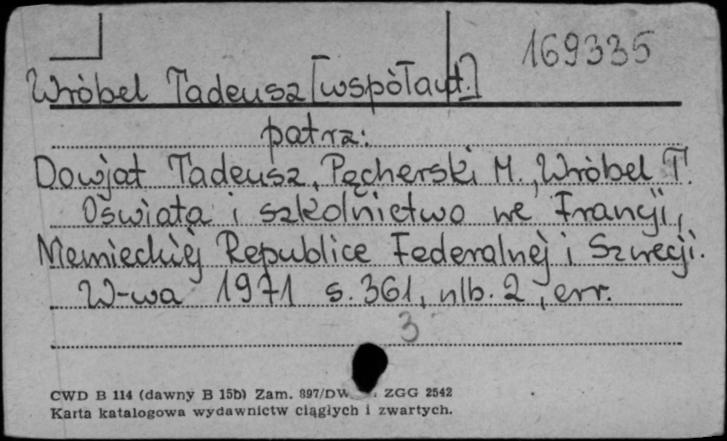 169335
Wróbel Tadeusz [współaut.]
patrz:
Dowjat Tadeusz, Pęcherski M., Wróbel T.
Oświata i szkolnictwo we Francji,
Niemieckiej Republice Federalnej i Szwecji.
W-wa 1971 s. 361, nlb. 2, err.
3
CWD B 114 (dawny B 15b) Zam. 897/DW ZGG 2542
Karta katalogowa wydawnictw ciągłych i zwartych.